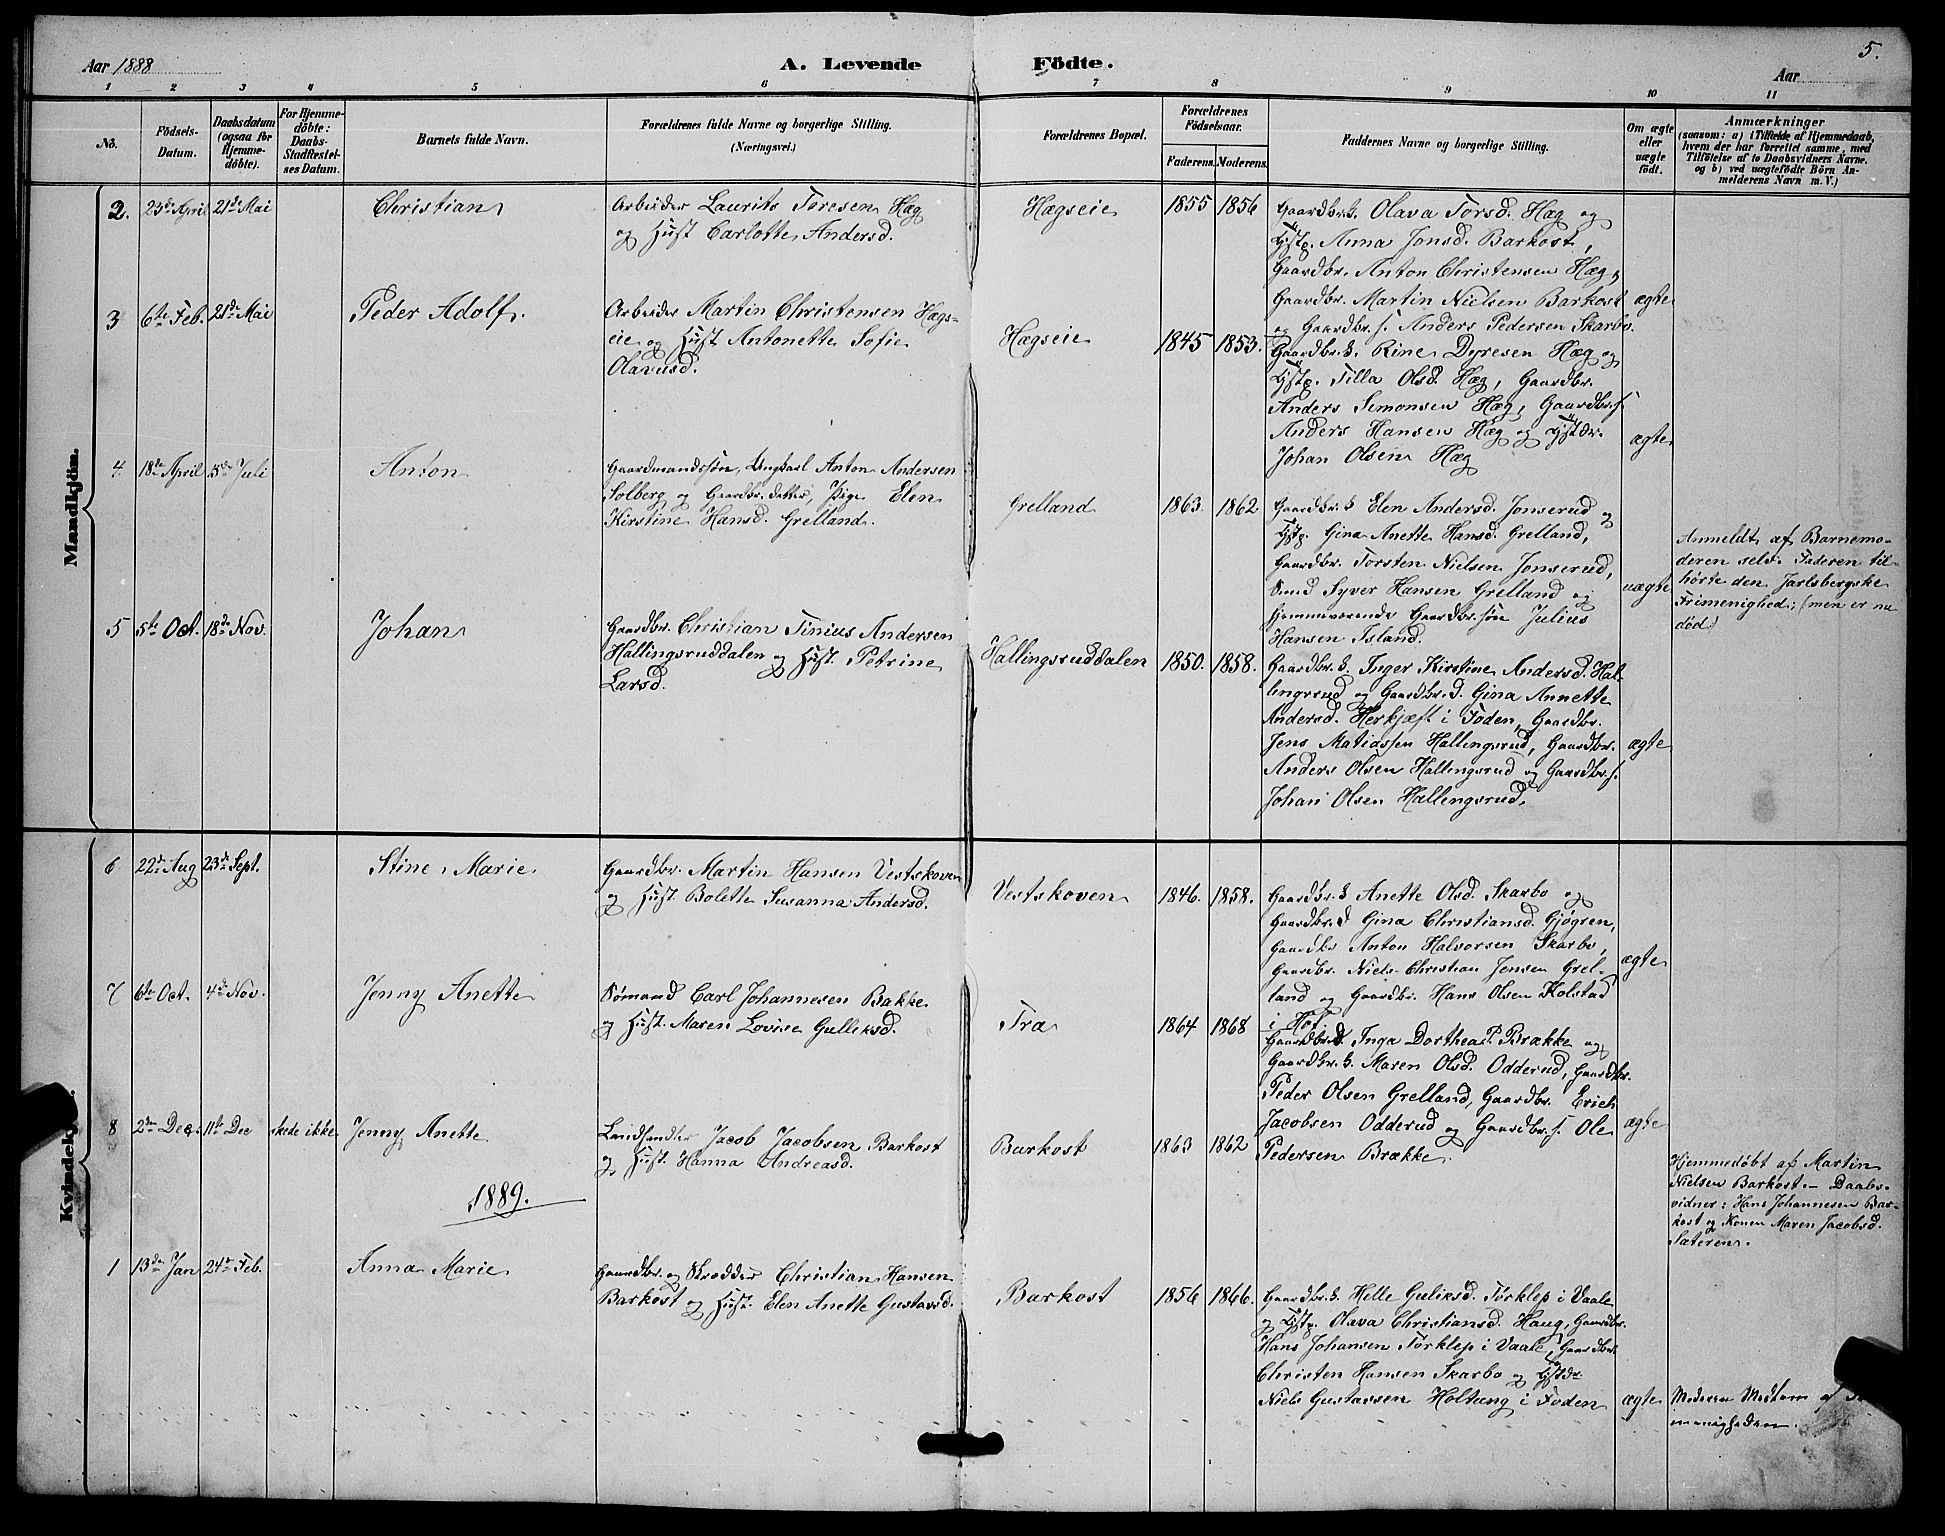 Aar 1888
A. Levende Födte.
Aar
5.
1 2 3 4 5 6 7 8 9 10 11
No.
Födsels-
Datum.
Daabsdatum
(ogsaa for
Hjemme-
döbte).
For Hjemme-
döbte:
Daabs-
Stadfæstel-
ses Datum.
Barnets fulde Navn.
Forældrenes fulde Navne og borgerlige Stilling.
(Næringsvei.)
Forældrenes Bopæl.
Forældrenes
Födselsaar.
Faderens. Moderens.
Faddernes Navne og borgerlige Stilling.
Om ægte
eller
uægte
födt.
Anmærkninger
(saasom: a) i Tilfælde af Hjemmedaab,
hvem der har forrettet samme, med
Tilföielse af to Daabsvidners Navne.
og b) ved uægtefödte Börn An-
melderens Navn m. V.)
Mandkjön.
2. 23de April 21de Mai
Christian
Arbeider Laurits Toresen Hæg
og Hust Carlotte Andersd.
Hægseie
1855 1856
Gaardbr.k. Olava Torsd. Hæg og
Anna Jonsd. Barkost,
Gaardbr. Anton Christensen Hæg,
Gaardbr. Martin Nielsen Barkost
og Gaardbr.s. Anders Pedersen Skarbo.
ægte
3 6te Feb. 21de Mai
Peder Adolf.
Arbeider Martin Christensen Hægs-
eie og Hust Antonette Sofie
Olavusd.
Hægseie
1845 1853.
Gaardbr.k. Rine Dyresen Hæg og
Tilla Olsd. Hæg, Gaardbr.
Anders Semonsen Hæg, Gaardbr.s.
Anders Hansen Hæg og
Johan Olsen Hæg
ægte
4 18de April 5te Juli
Anton
Gaardmandssøn, Ungkarl Anton Andersen
Solberg og Gaardbr. datter, Pige Elen
Kirstine Hansd. Grelland.
Grelland
1863 1862
Gaardbr.k Elen Andersd. Jonserud og
Gina Anette Hansd. Grelland,
Gaardbr. Torsten Nielsen Jonserud,
Smed Syver Hansen Grelland og
hjemmeværende Gaardbr. søn Julius
Hansen Island.
uægte
Anmeldt af Barnemo-
deren selv. Faderen til-
hørte den Jarlsbergske
Frimenighed; (men er nu
død.)
5 5te Oct. 18de Nov.
Johan
Gaardbr. Christian Tinius Andersen
Hallingsruddalen og Hust. Petrine
Larsd.
Hallingsruddalen
1850. 1858.
Gaardbr.k. Inger Kirstine Andersd. Hal-
lingsrud og Gaardbr.d. Gina Annette
Andersd. Herkjæst i Foden, Gaardbr.
Jens Matiassen Hallingsrud, Gaardbr.
Anders Olsen Hallingsrud og Gaardbr.s.
Johan Olsen Hallingsrud.
ægte
Kvindekjön.
6 22de Aug 23de Sept.
Stine Marie
Gaardbr. Martin Hansen Vestskoven
og Hust. Bolette Susanna Andersd.
Vestskoven
1846. 1858.
Gaardbr.k Anette Olsd. Skarbo og
Gaardbr.d Gina Christiansd. Gjøgren,
Gaardbr Anton Halvorsen Skarbo,
Gaardbr. Niels Christian Jensen Grel-
land og Gaardbr. Hans Olsen Kolstad
i Hof.
ægte
7 6te Oct. 4de Nov.
Jenny Anette
Sømand Carl Johannesen Bakke
og Hust. Maren Lovise Gulleksd.
Fra
1864 1868
Gaardbr.d. Inga Dorthea P. Brække og
Gaardbr.k. Maren Olsd. Odderud, Gaardbr.
Peder Olsen Grelland, Gaardbr. Erich
Jacobsen Odderud og Gaardbr.s. Ole
Pedersen Brække.
ægte
8 2den Dec. 11te Dec skede ikke
Jenny Anette
Landhandler Jacob Jacobsen Barkost
og Hust. Hanna Andreasd.
Barkost
1863 1862
Hjemmedøbt af Martin
Nielsen Barkost.- Daabs-
vidner: Hans Johannesen Bar-
kost og Konen Maren Jacobsd.
Sæteren.
1889.
1 13de Jan 24de Feb.
Anna Marie
Gaardbr. og Skrædder Christian Hansen
Barkost og Hust. Elen Anette Gustavsd.
Barkost
1856 1866.
Gaardbr.k. Helle Guliksd. Torklep i Vaale
og Olava Christiansd. Haug, Gaardbr.
Hans Johansen Torklep i Vaale, Gaardbr.
Christen Hansen Skarbo og
Niels Gustavsen Holtung i Foden
ægte
Moderen Medlem af
menigheden.